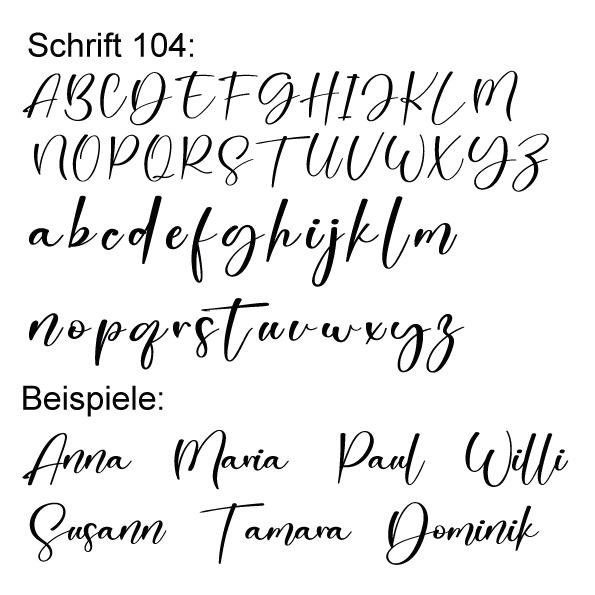 Schrift 104:
ABCDEFGHIJKLM
NOPQRSTUVWXYZ
abcdefghijklm
nopqrstuvwxyz
Beispiele:
Anna Maria Paul Willi
Susann Tamara Dominik